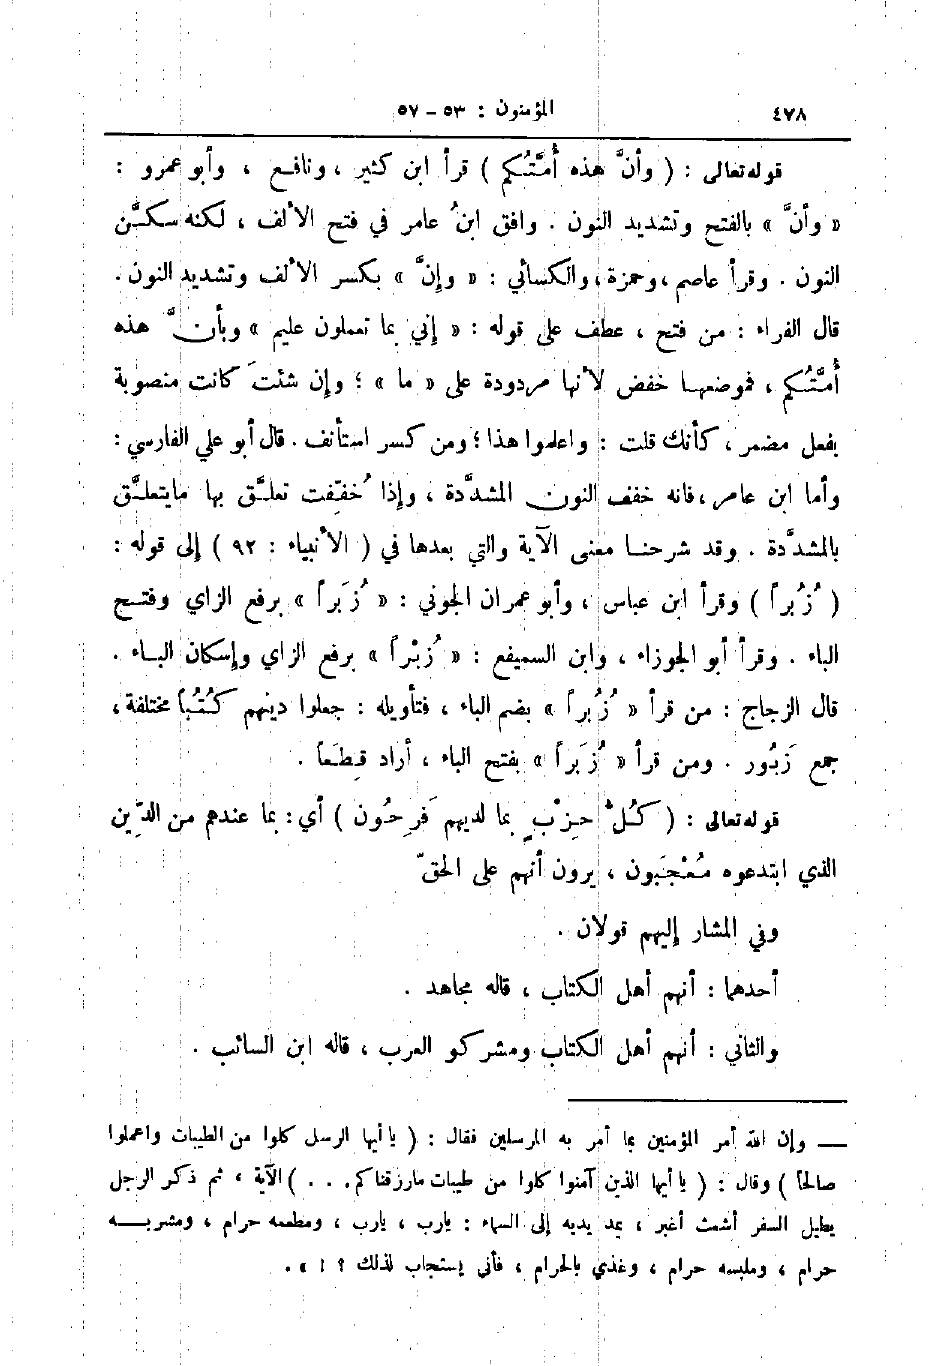 ٤٧٨ المؤمنون : ٥٣ – ٥٧
قوله تعالى : ( وأنَّ هذه أُمَّتُكم ) قرأ ابن كثير ، ونافع ، وأبو عمرو :
« وأنَّ » بالفتح وتشديد النون . وافق ابنُ عامر في فتح الألف ، لكنه سكَّن
النون . وقرأ عاصم ، وحمزة ، والكسائي : « وإنَّ » بكسر الألف وتشديد النون .
قال الفراء : من فتح ، عطف على قوله : « إني بما تعملون عليم » وبأنَّ هذه
أُمَّتُكم ، فموضعها خفض لأنها مردودة على « ما » ؛ وإن شئتَ كانت منصوبة
بفعل مضمر ، كأنك قلت : واعلموا هذا ؛ ومن كسر استأنف . قال أبو علي الفارسي :
وأما ابن عامر ، فانه خفف النون المشدَّدة ، وإذا خُفِّفت تعلَّق بها مايتعلَّق
بالمشدَّدة . وقد شرحنا معنى الآية والتي بعدها في ( الأنبياء : ٩٢ ) إلى قوله :
( زُبُراً ) وقرأ ابن عباس ، وأبو عمران الجوني : « زُبَراً » برفع الزاي وفتح
الباء . وقرأ أبو الجوزاء ، وابن السميفع : « زُبْراً » برفع الزاي وإسكان الباء .
قال الزجاج : من قرأ « زُبُراً » بضم الباء ، فتأويله : جعلوا دينهم كُتُباً مختلفة ،
جمع زَبُور . ومن قرأ « زُبَراً » بفتح الباء ، أراد قِطَعاً .
قوله تعالى : ( كُلُّ حِزْبٍ بما لديهم فَرِحُون ) أي : بما عندهم من الدِّين
الذي ابتدعوه مُعْجَبون ، يرون أنهم على الحقّ
وفي المشار إليهم قولان .
أحدهما : أنهم أهل الكتاب ، قاله مجاهد .
والثاني : أنهم أهل الكتاب ومشركو العرب ، قاله ابن السائب .
— وإن الله أمر المؤمنين بما أمر به المرسلين فقال : ( يا أيها الرسل كلوا من الطيبات واعملوا
صالحاً ) وقال : ( يا أيها الذين آمنوا كلوا من طيبات مارزقناكم . . . ) الآية ، ثم ذكر الرجل
يطيل السفر أشعث أغبر ، يمد يديه إلى السماء : يارب ، يارب ، ومطعمه حرام ، ومشربه
حرام ، وملبسه حرام ، وغذي بالحرام ، فأنى يستجاب لذلك ؟ ! » .